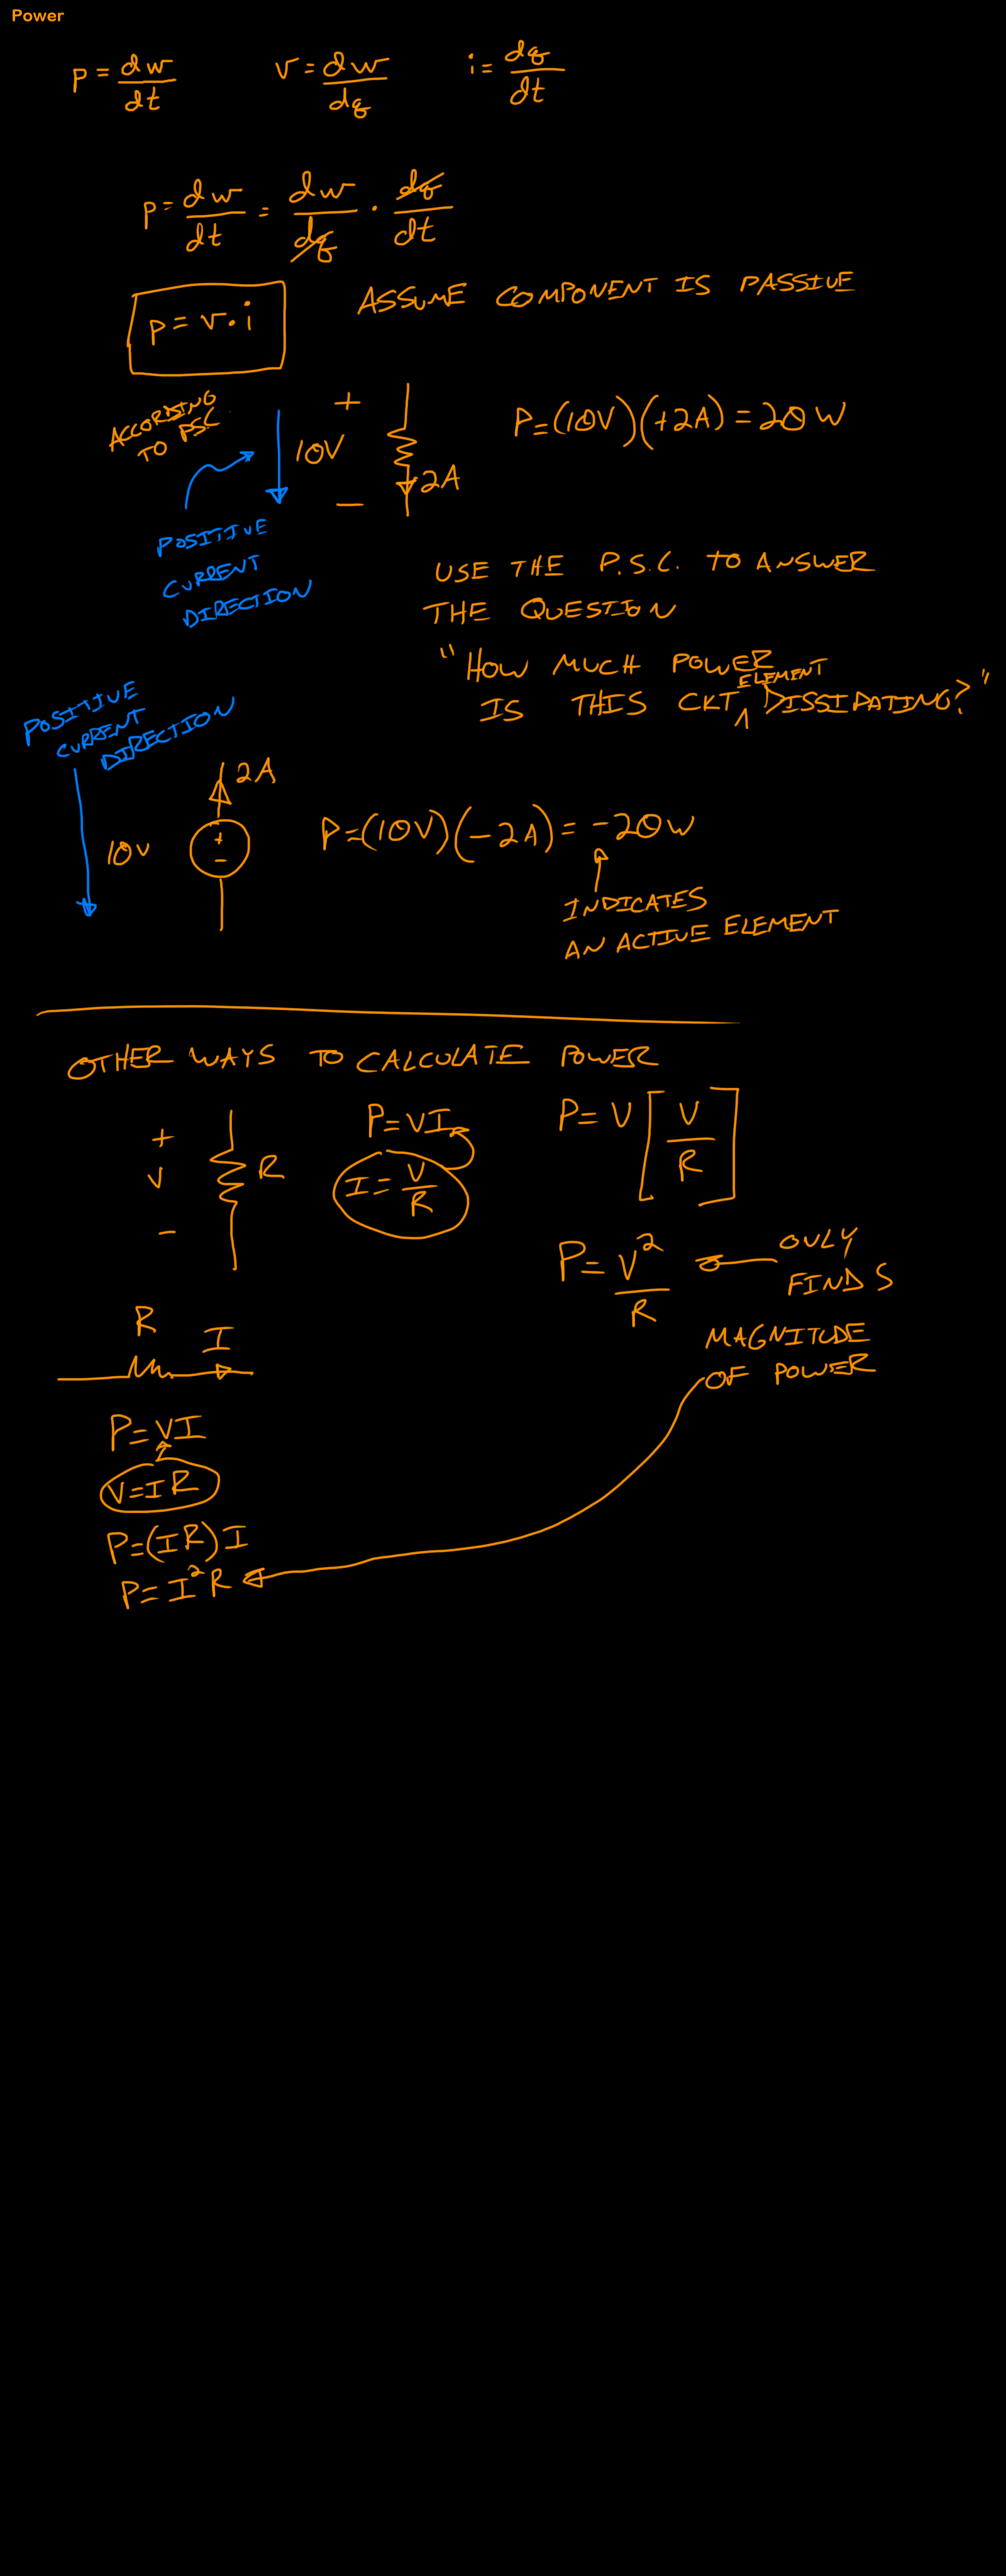 Power
p = dw/dt v = dw/dq i = dq/dt
p = dw/dt = dw/dq · dq/dt
p = v · i
ASSUME COMPONENT IS PASSIVE
ACCORDING
TO PSC
+
10V
−
2A
P=(10V)(+2A) = 20W
POSITIVE
CURRENT
DIRECTION
USE THE P.S.C. TO ANSWER
THE QUESTION
"HOW MUCH POWER
IS THIS CKT ELEMENT DISSIPATING?"
POSITIVE
CURRENT
DIRECTION
2A
10V
+
−
P=(10V)(−2A) = −20W
INDICATES
AN ACTIVE ELEMENT
OTHER WAYS TO CALCULATE POWER
+
V
−
R
P=VI
I = V/R
P= V [V/R]
P= V²/R
ONLY
FINDS
MAGNITUDE
OF POWER
R
I
P=VI
V=IR
P=(IR)I
P=I²R